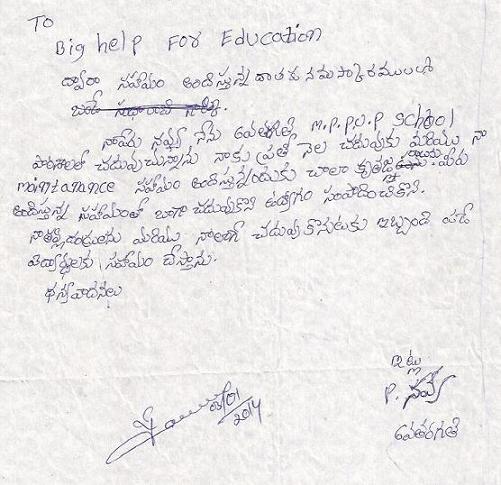 To
Big help For Education
ద్వారా సహాయం అందిస్తున్న దాతకు నమస్కారములు
నాపేరు నవ్య నేను 6వతరగతి M.P.P.U.P School
పాఠశాలలో చదువుచున్నాను నాకు ప్రతి నెల చదువుకు మరియు నా
maintanance సహాయం అందిస్తున్నందుకు చాలా కృతజ్ఞతలు మీరు
అందిస్తున్న సహాయంతో బాగా చదువుకొని ఉద్యోగం సంపాదించుకొని
నాతల్లిదండ్రులను మరియు నాలాగే చదువుకొనుటకు ఇబ్బంది పడే
విద్యార్థులకు సహాయం చేస్తాను.
ధన్యవాదములు
ఇట్లు
P. నవ్య
6వతరగతి
2014